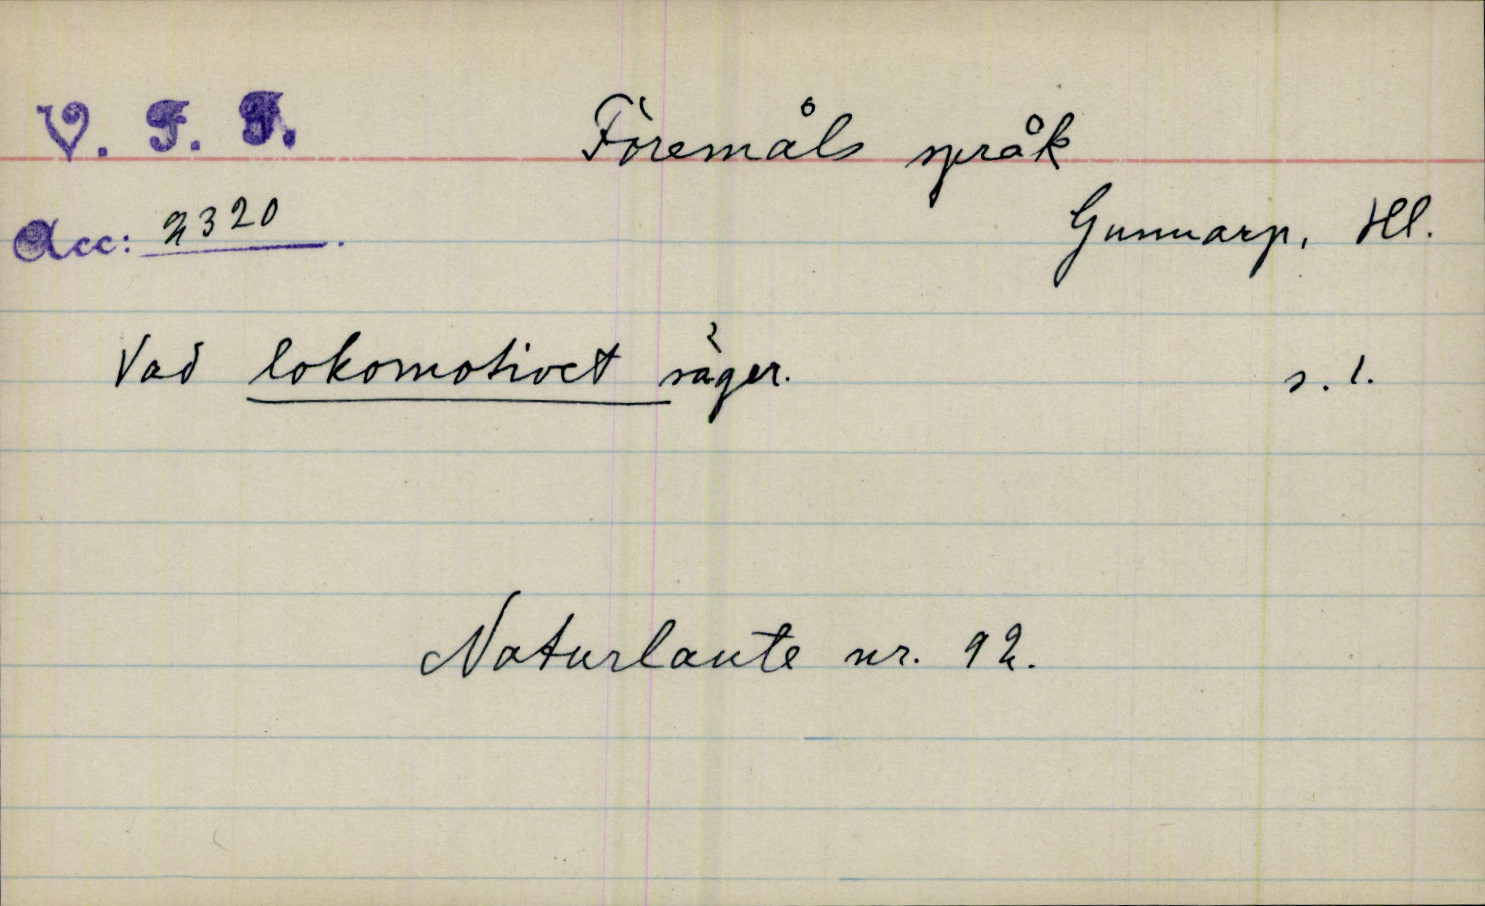 V. F. F. Föremåls språk
Acc: 2320. Gunnarp, Hl.
Vad lokomotivet säger. s. 1.
Naturlaute nr. 92.